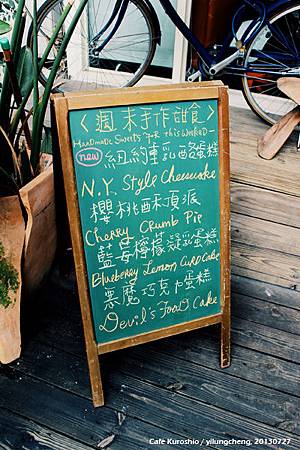 〈週末手作甜食〉
HANDMADE SWEETS FOR this WEEKEND -
new 紐約重乳酪蛋糕
N.Y. Style Cheesecake
櫻桃酥頂派
Cherry Crumb Pie
藍莓檸檬凝乳蛋糕
Blueberry Lemon CURD CAKE
惡魔巧克力蛋糕
Devil's FOOD CAKE
Café Kuroshio / yilungcheng, 20130727